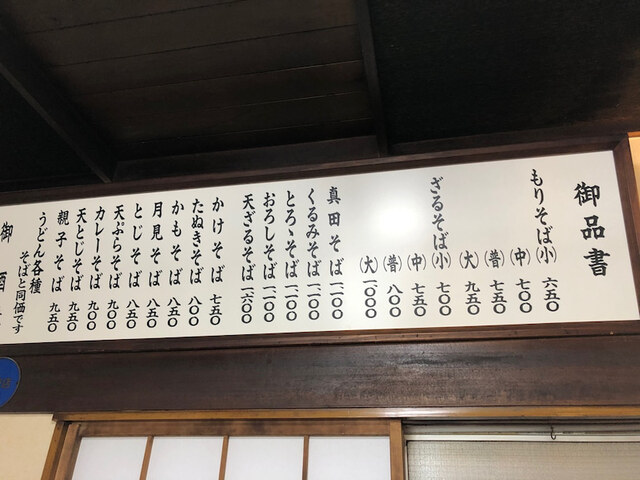 御品書
もりそば(小) 六五〇
(中) 七〇〇
(普) 七五〇
(大) 九五〇
ざるそば(小) 七〇〇
(中) 七五〇
(普) 八〇〇
(大) 一〇〇〇
真田そば 一二〇〇
くるみそば 一二〇〇
とろゝそば 一二〇〇
おろしそば 一二〇〇
天ざるそば 一六〇〇
かけそば 七五〇
たぬきそば 八〇〇
かもそば 八五〇
月見そば 八五〇
とじそば 八五〇
天ぷらそば 九〇〇
カレーそば 九〇〇
天とじそば 九五〇
親子そば 九五〇
うどん各種
そばと同価です
御酒